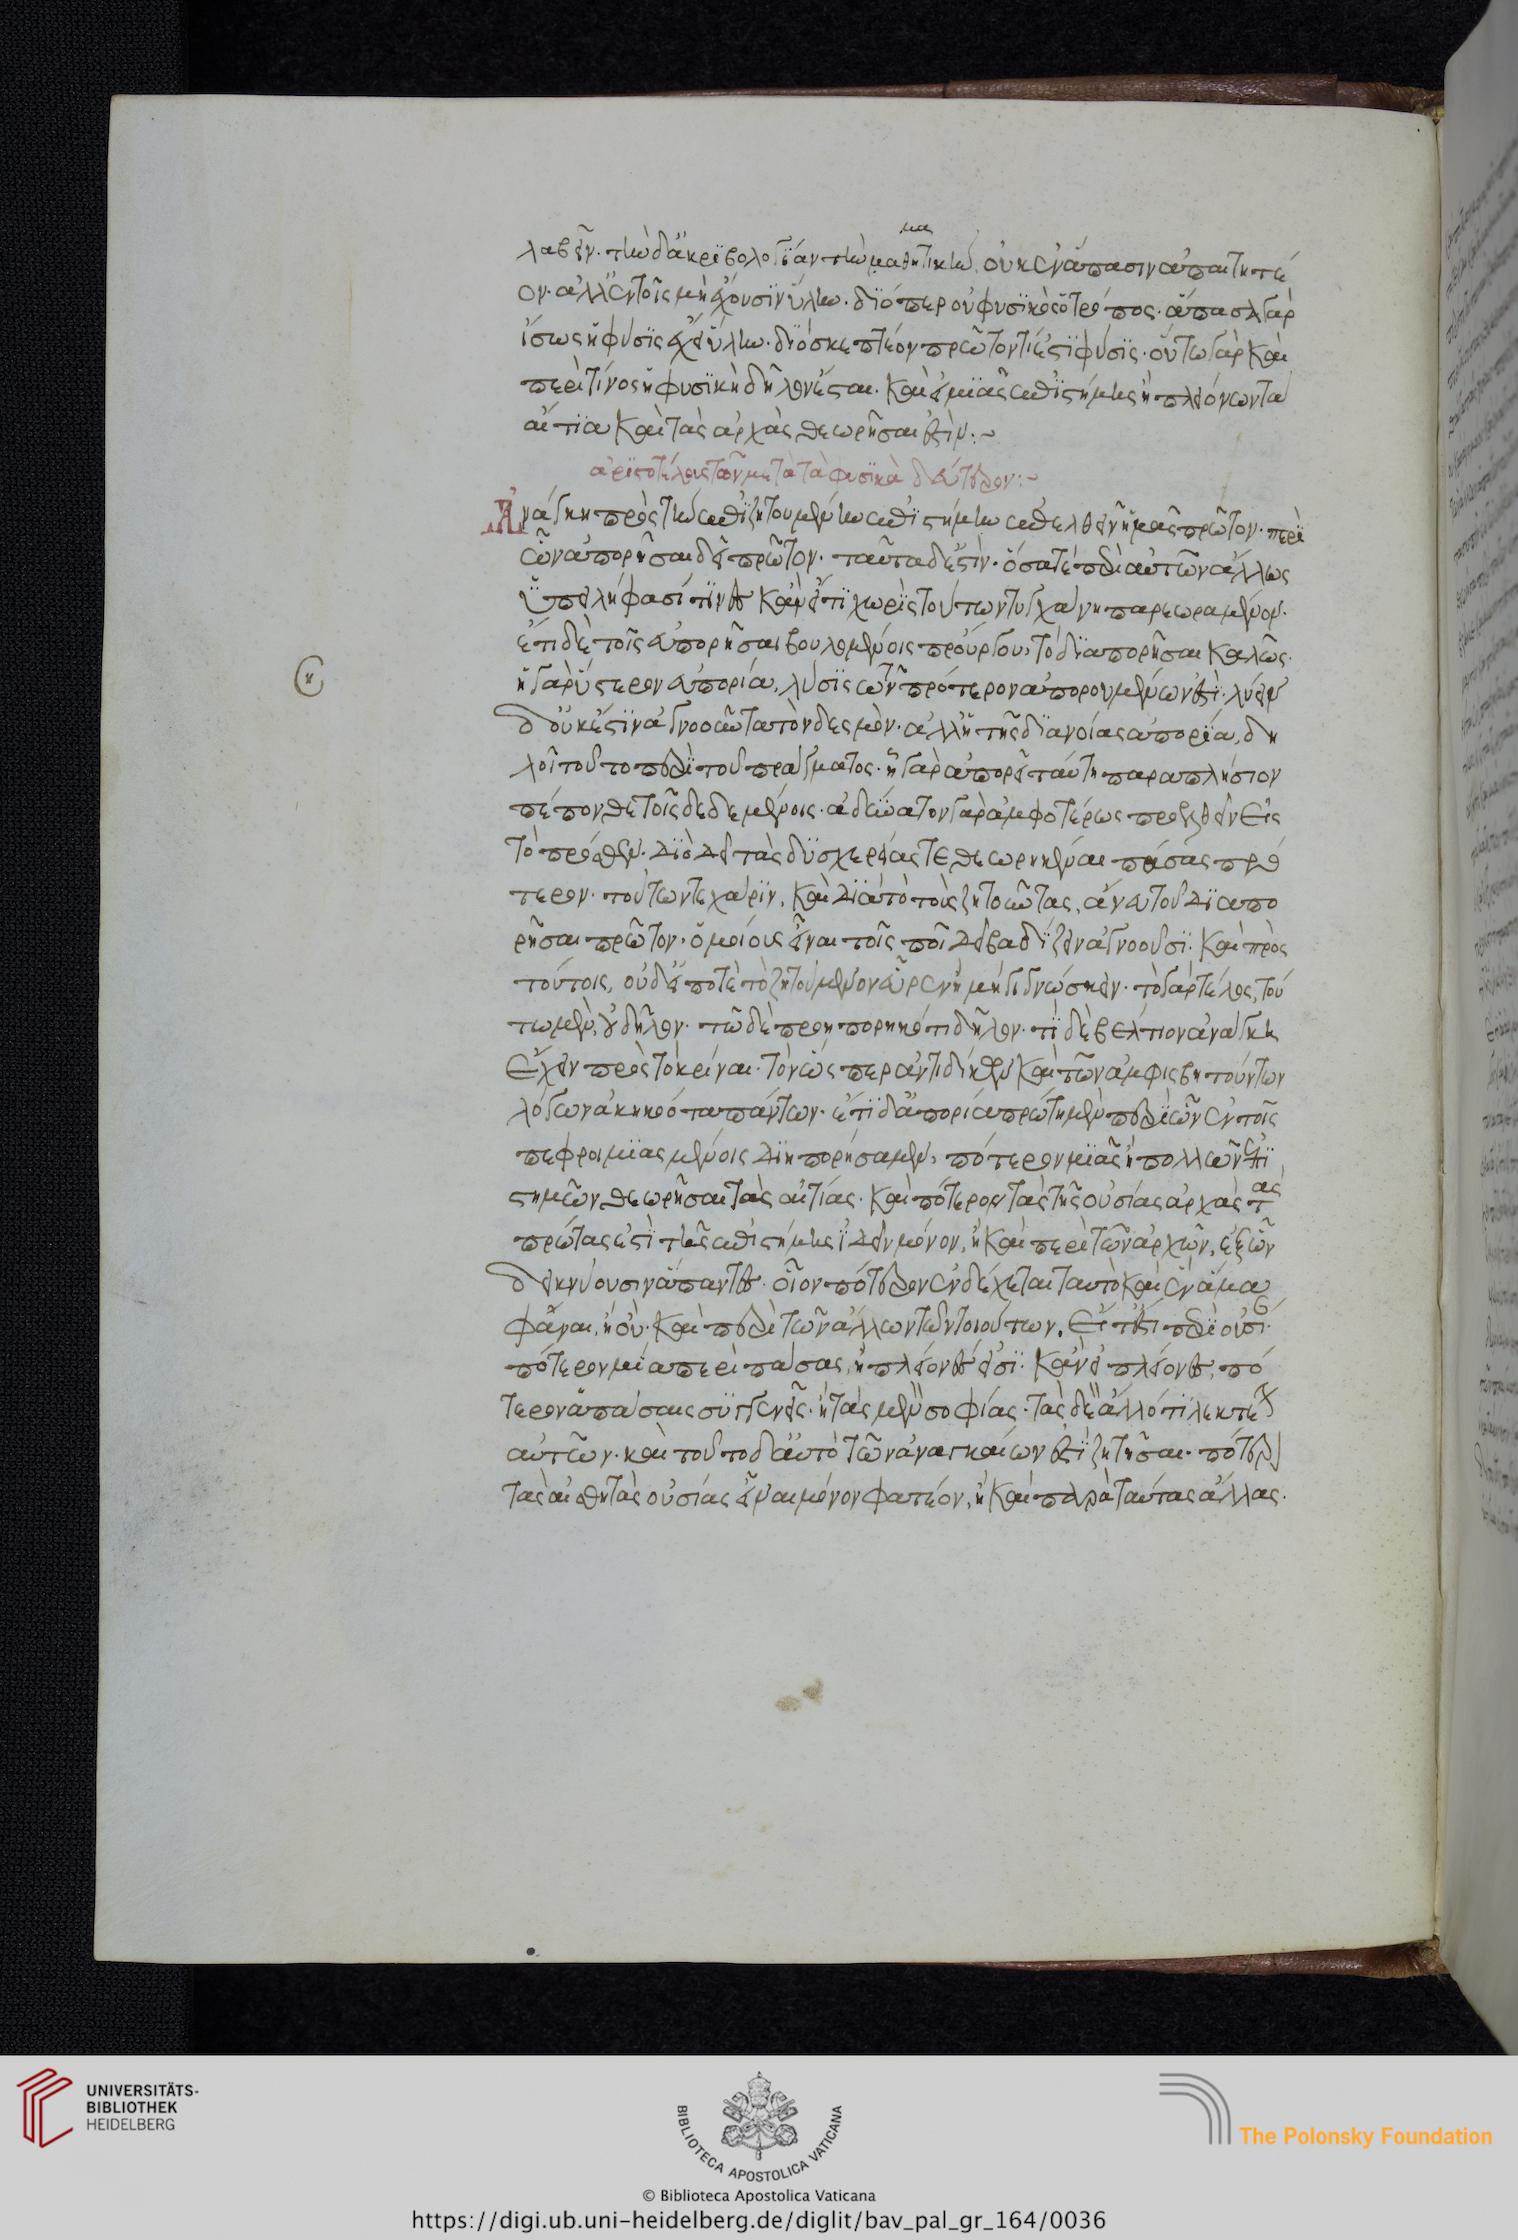 μα
λαβεῖν· τὴν δ' ἀκριβολογίαν τὴν μαθητικὴν, οὐκ ἐν ἅπασιν ἀπαιτητέ
ον· ἀλλ' ἐν τοῖς μὴ ἔχουσιν ὕλην· διόπερ οὐ φυσικὸς ὁ τρόπος· ἅπασα γὰρ
ἴσως ἡ φύσις ἔχει ὕλην· διὸ σκεπτέον πρῶτον τί ἐστιν φύσις· οὕτω γὰρ καὶ
περὶ τίνος ἡ φυσικὴ δῆλον ἔσται· καὶ εἰ μιᾶς ἐπιστήμης ἢ πλειόνων τὰ
αἴτια καὶ τὰς ἀρχὰς θεωρῆσαι ἐστίν:~
ἀριστοτέλους τῶν μετὰ τὰ φυσικὰ δεύτερον:~
Ἀνάγκη πρὸς τὴν ἐπιζητουμένην ἐπιστήμην ἐπελθεῖν ἡμᾶς πρῶτον· περὶ
ὧν ἀπορῆσαι δεῖ πρῶτον· ταῦτα δ' ἐστὶν· ὅσα τε περὶ αὐτῶν ἄλλως
ὑπειλήφασί τινες κἂν εἴ τι χωρὶς τούτων τυγχάνη παρεωραμένον·
ἔτι δὲ τοῖς ἀπορῆσαι βουλομένοις προὔργου, τὸ διαπορῆσαι καλῶς·
ἡ γὰρ ὕστερον ἀπορία, λύσις τῶν πρότερον ἀπορουμένων ἐστὶ· λύειν
δ' οὐκ ἔστιν ἀγνοοῦντα τὸν δεσμόν· ἀλλ' ἡ τῆς διανοίας ἀπορία, δη
λοῖ τοῦτο περὶ τοῦ πράγματος· ἧ γὰρ ἀπορεῖ ταύτη παραπλήσιον
πέπονθε τοῖς δεδεμένοις· ἀδύνατον γὰρ ἀμφοτέρως προελθεῖν εἰς
τὸ πρόσθεν· διὸ δεῖ τὰς δυσχερείας τεθεωρηκέναι πάσας πρό
τερον· τούτων τε χάριν, καὶ διὰ τὸ τοὺς ζητοῦντας, ἄνευ τοῦ διαπο
ρῆσαι πρῶτον· ὁμοίους εἶναι τοῖς ποῖ δεῖ βαδίζειν ἀγνοοῦσι· καὶ πρὸς
τούτοις, οὐδ' εἴ ποτε τὸ ζητούμενον εὗρεν ἢ μὴ γιγνώσκειν· τὸ γὰρ τέλος, τού
τω μὲν, οὐ δῆλον· τῶ δὲ προηπορηκότι δῆλον· ἔτι δὲ βέλτιον ἀνάγκη
ἔχειν πρὸς τὸ κρῖναι· τὸν ὥσπερ ἀντιδίκων καὶ τῶν ἀμφισβητούντων
λόγων ἀκηκοότα πάντων· ἔτι δ' ἀπορία πρώτη μὲν περὶ ὧν ἐν τοῖς
πεφροιμιασμένοις διηπορήσαμεν, πότερον μιᾶς ἢ πολλῶν ἐπι
στημῶν θεωρῆσαι τὰς αἰτίας· καὶ πότερον τὰς τῆς οὐσίας ἀρχὰς τὰς
πρώτας ἐστὶ τῆς ἐπιστήμης ἰδεῖν μόνον, ἢ καὶ περὶ τῶν ἀρχῶν, ἐξ ὧν
δεικνύουσιν ἅπαντες· οἷον πότερον ἐνδέχεται ταυτὸ καὶ ἓν ἅμα
φάναι, ἢ οὔ· καὶ περὶ τῶν ἄλλων τῶν τοιούτων. εἴ τ' ἐστὶ περὶ οὐσί·
πότερον μία περὶ πάσας, ἢ πλείονες εἰσί· κἂν εἰ πλείονες, πό
τερον ἅπασαι συγγενεῖς· ἢ τὰς μὲν σοφίας· τὰς δὲ ἄλλό τι λεκτέον
αὐτῶν· καὶ τοῦτο δ' αὐτὸ τῶν ἀναγκαίων ἐστὶ ζητῆσαι· πότερον
τὰς αἰσθητὰς οὐσίας εἶναι μόνον φατέον, ἢ καὶ παρὰ ταύτας ἄλλας.
UNIVERSITÄTS-
BIBLIOTHEK
HEIDELBERG
BIBLIOTECA APOSTOLICA VATICANA
The Polonsky Foundation
© Biblioteca Apostolica Vaticana
https://digi.ub.uni-heidelberg.de/diglit/bav_pal_gr_164/0036